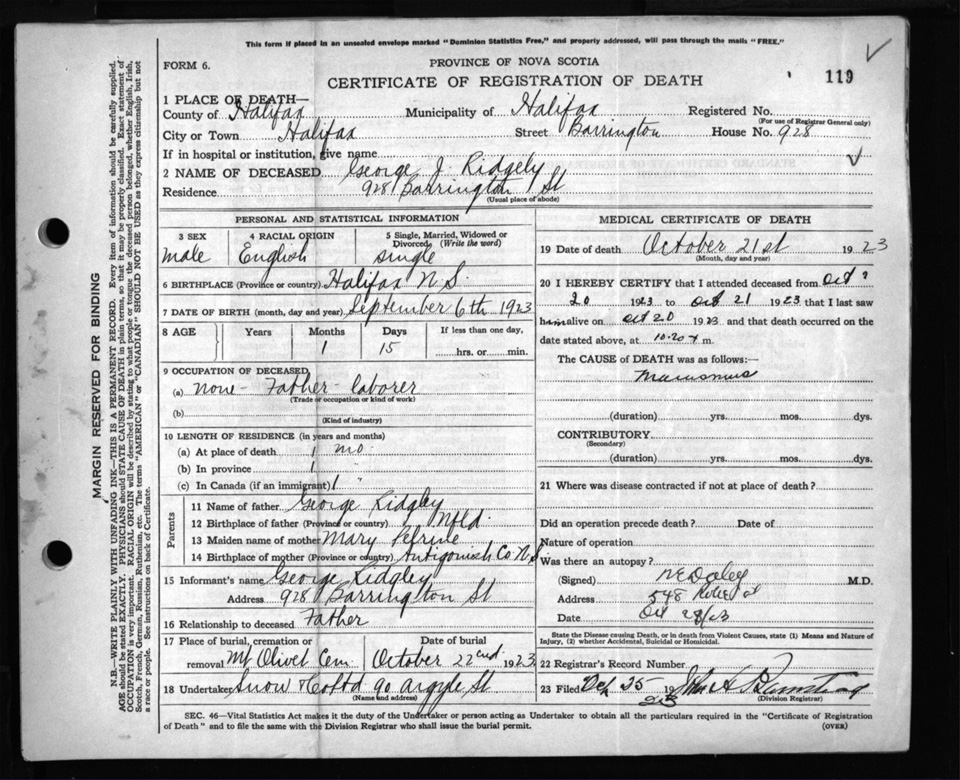 This form if placed in an unsealed envelope marked "Dominion Statistics Free," and properly addressed, will pass through the mails "FREE."
FORM 6.
PROVINCE OF NOVA SCOTIA
CERTIFICATE OF REGISTRATION OF DEATH
119
1 PLACE OF DEATH—
County of Halifax Municipality of Halifax Registered No.
(For use of Registrar General only)
City or Town Halifax Street Barrington House No. 928
If in hospital or institution, give name
2 NAME OF DECEASED George J. Ridgely
Residence 928 Barrington St
(Usual place of abode)
PERSONAL AND STATISTICAL INFORMATION
3 SEX 4 RACIAL ORIGIN 5 Single, Married, Widowed or Divorced (Write the word)
male English single
6 BIRTHPLACE (Province or country) Halifax N.S.
7 DATE OF BIRTH (month, day and year) September 6th 1923
8 AGE Years Months Days If less than one day,
1 15 hrs. or min.
9 OCCUPATION OF DECEASED
(a) none - Father - laborer
(Trade or occupation or kind of work)
(b)
(Kind of industry)
10 LENGTH OF RESIDENCE (in years and months)
(a) At place of death 1 mo.
(b) In province 1 "
(c) In Canada (if an immigrant) 1 "
Parents
11 Name of father George Ridgley
12 Birthplace of father (Province or country) Nfld.
13 Maiden name of mother Mary
14 Birthplace of mother (Province or country) Antigonish Co. N.S
15 Informant's name George Ridgley
Address 928 Barrington St
16 Relationship to deceased Father
17 Place of burial, cremation or removal Mt Olivet Cem
Date of burial October 22nd 1923
18 Undertaker Snow & Co Ltd 90 Argyle St
(Name and address)
MEDICAL CERTIFICATE OF DEATH
19 Date of death October 21st 1923
(Month, day and year)
20 I HEREBY CERTIFY that I attended deceased from Oct
20 1923 to Oct 21 1923 that I last saw
him alive on Oct 20 1923 and that death occurred on the
date stated above, at 10.20 m.
The CAUSE of DEATH was as follows:—
Marasmus
(duration) yrs. mos. dys.
CONTRIBUTORY
(Secondary)
(duration) yrs. mos. dys.
21 Where was disease contracted if not at place of death?
Did an operation precede death? Date of
Nature of operation
Was there an autopsy?
(Signed) M.D.
Address 548
Date Oct /23
State the Disease causing Death, or in death from Violent Causes, state (1) Means and Nature of
Injury, (2) whether Accidental, Suicidal or Homicidal.
22 Registrar's Record Number
23 Filed 25 19 23 John A
(Division Registrar)
SEC. 46—Vital Statistics Act makes it the duty of the Undertaker or person acting as Undertaker to obtain all the particulars required in the "Certificate of Registration
of Death" and to file the same with the Division Registrar who shall issue the burial permit.
(OVER)
MARGIN RESERVED FOR BINDING
N.B.—WRITE PLAINLY WITH UNFADING INK—THIS IS A PERMANENT RECORD. Every item of information should be carefully supplied.
AGE should be stated EXACTLY. PHYSICIANS should STATE CAUSE OF DEATH in plain terms, so that it may be properly classified. Exact statement of
OCCUPATION is very important. RACIAL ORIGIN will be described by stating to what people or tongue the deceased person belonged, whether English, Irish,
Scotch, French, German, Russian, Ruthenian, etc. The terms "AMERICAN" or "CANADIAN" SHOULD NOT BE USED as they express citizenship but not
a race or people. See instructions on back of Certificate.